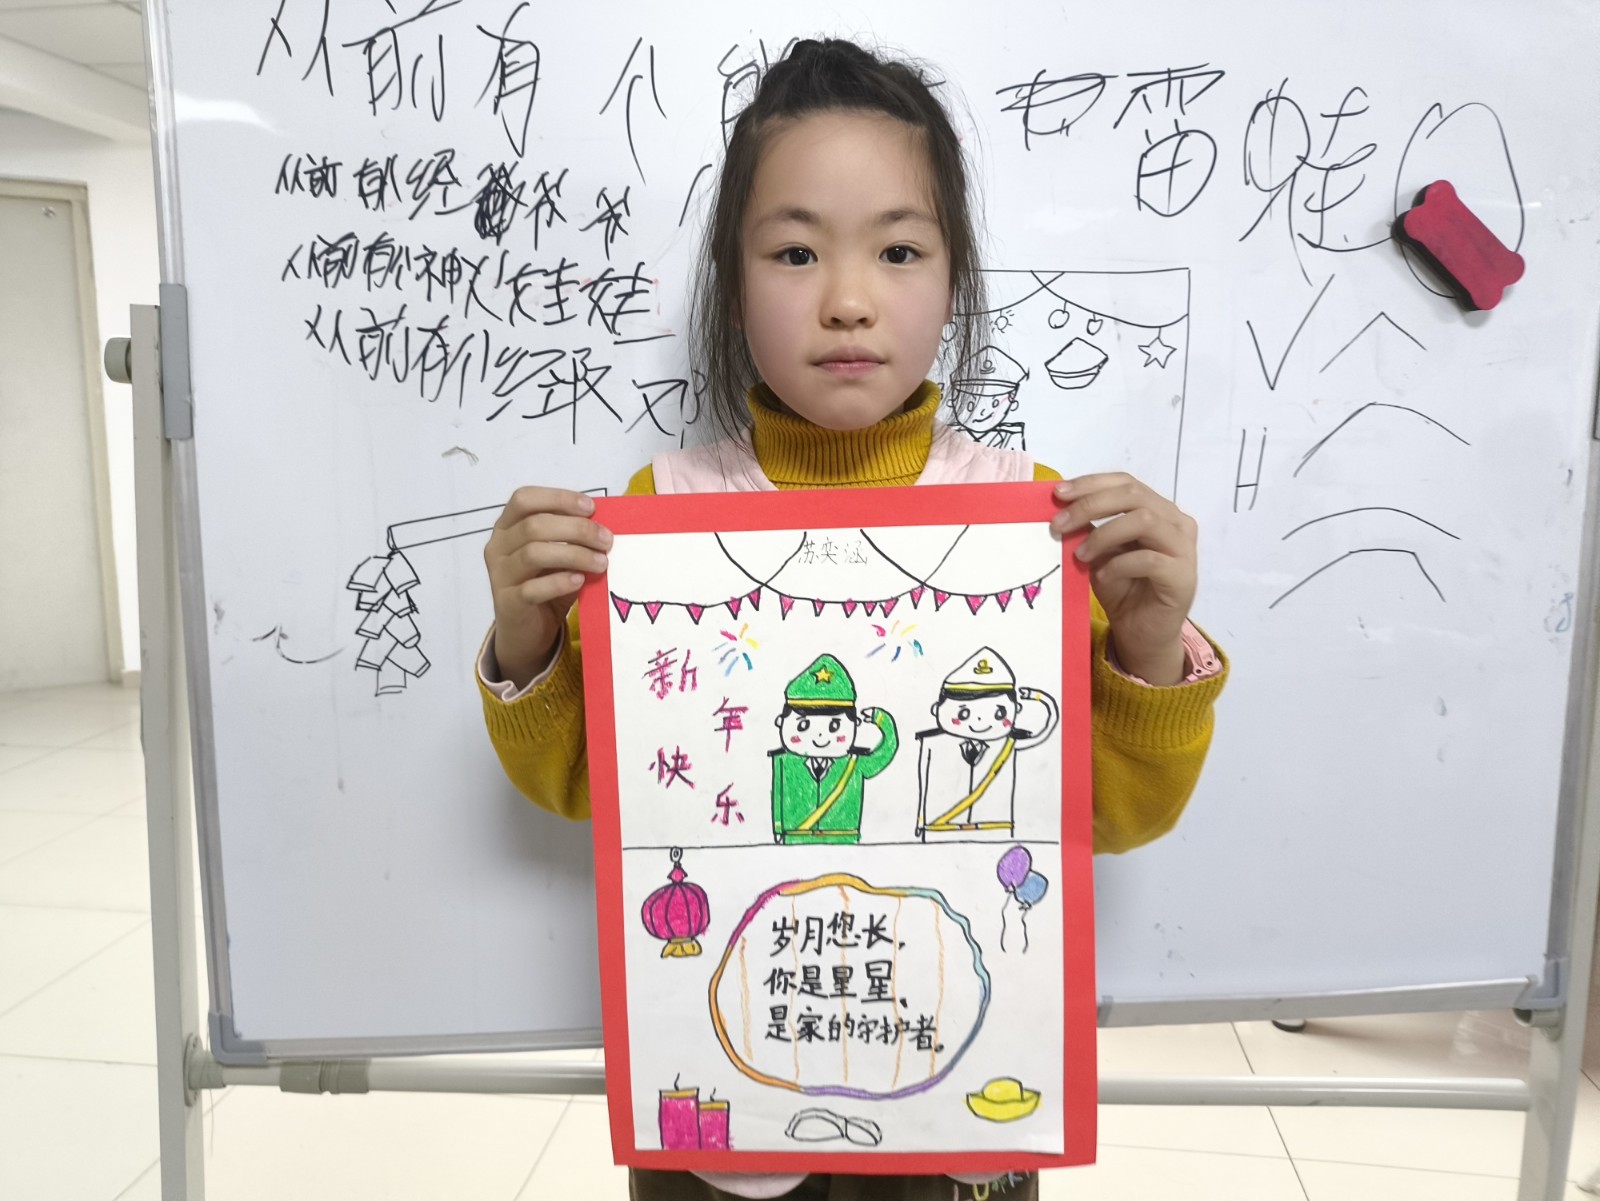 从前有个
雷蛙
从前有个经
从前有个神火娃娃
从前有个经
苏奕涵
新年快乐
岁月悠长，
你是星星，
是家的守护者。